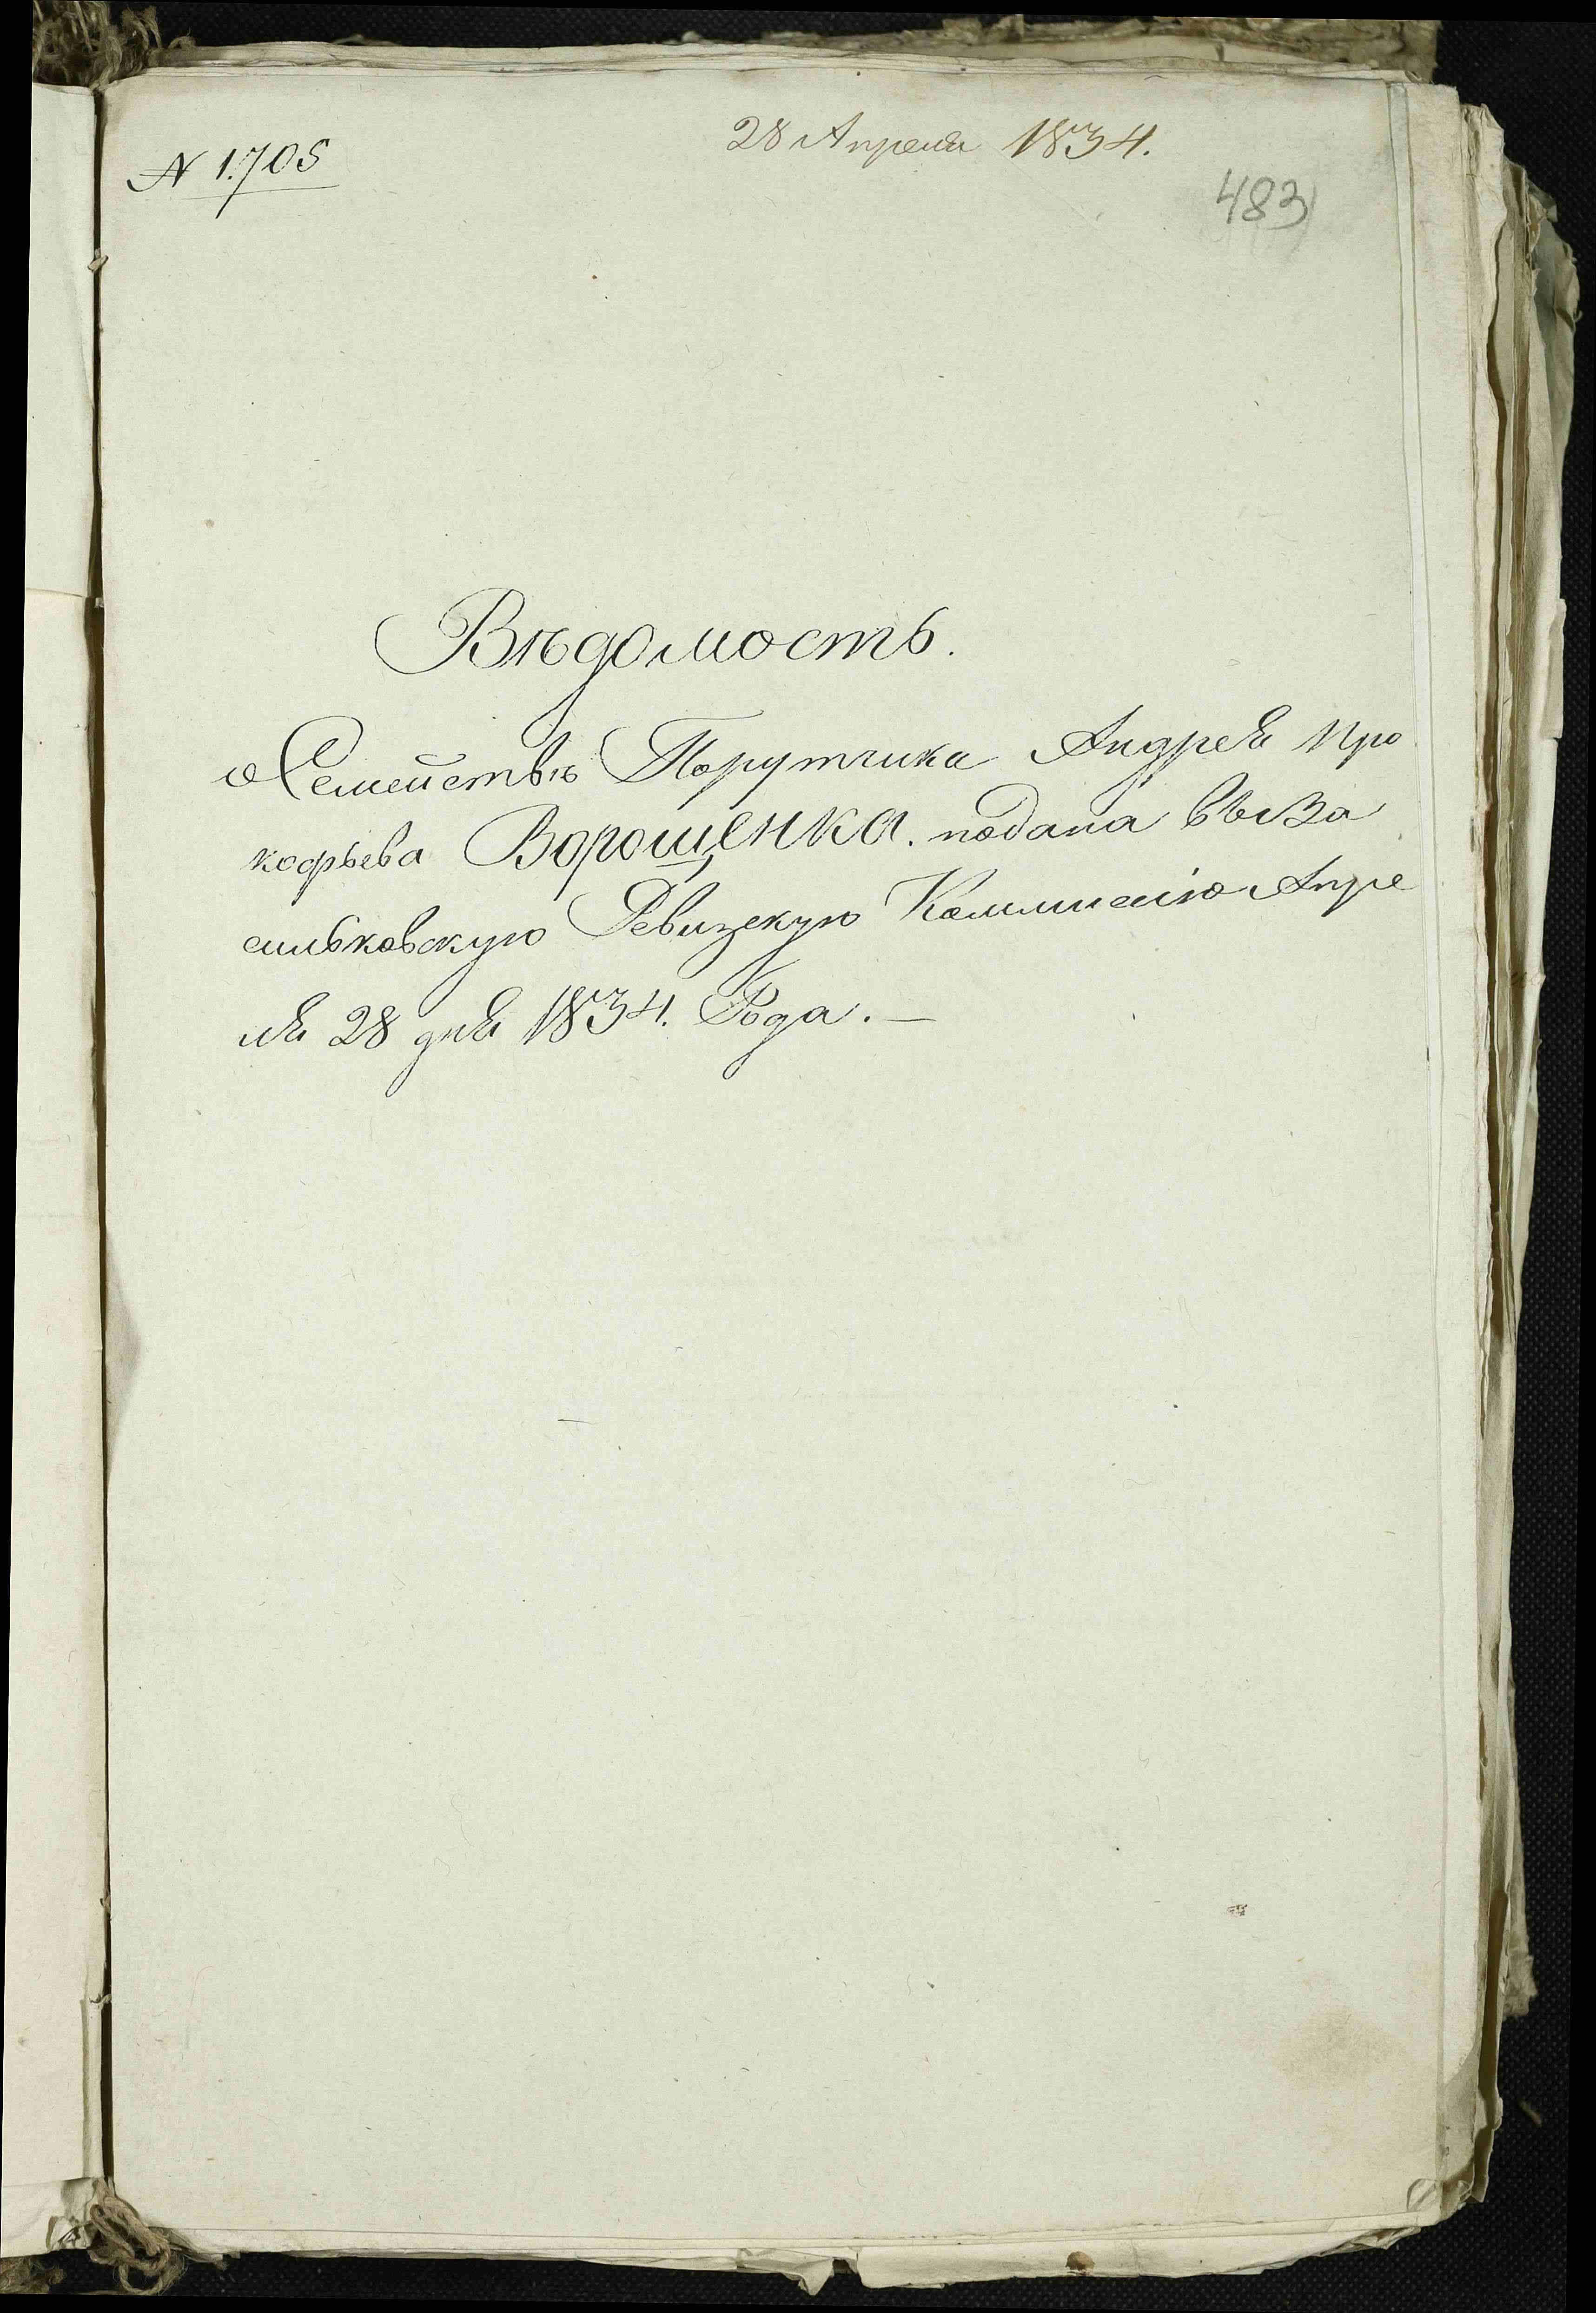 № 1.705
28 Апреля 1834.
483
Вѣдомость.
о Семействѣ Порутчика Андрея Про
кофьева Ворощенка. подана въ Ва
сильковскую Ревизскую Коммисію Апре
ля 28 дня 1834. Года. —